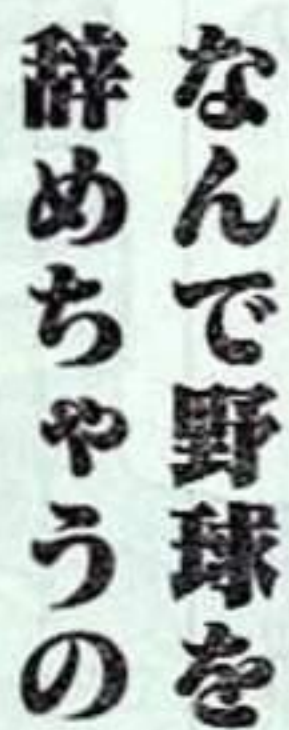 なんで野球を
辞めちゃうの